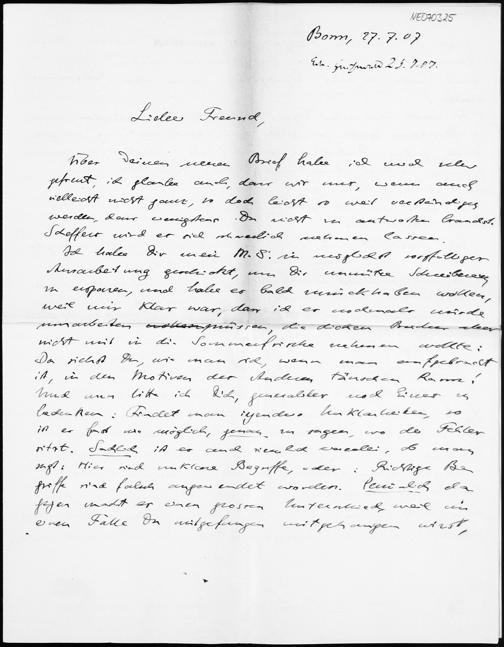 NEDA0325
Bonn, 27.7.07
Lieber Freund,
Über Deinen neuen Brief habe ich mich sehr
gefreut, ich glaube auch, dass wir uns, wenn auch
vielleicht nicht ganz, so doch leicht so weit verständigen
werden, dass wenigstens Du nicht zu antworten brauchst.
Scheffers wird es sich schwerlich nehmen lassen.
Ich habe Dir mein M.S. in möglichst sorgfältiger
Ausarbeitung geschickt, um Dir unnütze Schreibereien
zu ersparen, und habe es bald zurückhaben wollen,
weil mir klar war, dass ich es nochmals würde
umarbeiten müssen, die dicken aber
nicht mit in die Sommerfrische nehmen wollte:
Da siehst Du, wie man sich, wenn man aufgebracht
ist, in den Motiven des Anderen täuschen kann!
Und nun bitte ich Dich, generaliter noch Eines zu
bedenken: Findet man irgendwo Unklarheiten, so
ist es fast nie möglich, genau zu sagen, wo der Fehler
sitzt. Sachlich ist es auch ziemlich einerlei, ob man
sagt: Hier sind unklare Begriffe, oder: Richtige Be
griffe sind falsch angewendet worden. Persönlich da
gegen macht es einen grossen Unterschied, weil im
einen Falle Du mitgefangen mitgehangen wirst,